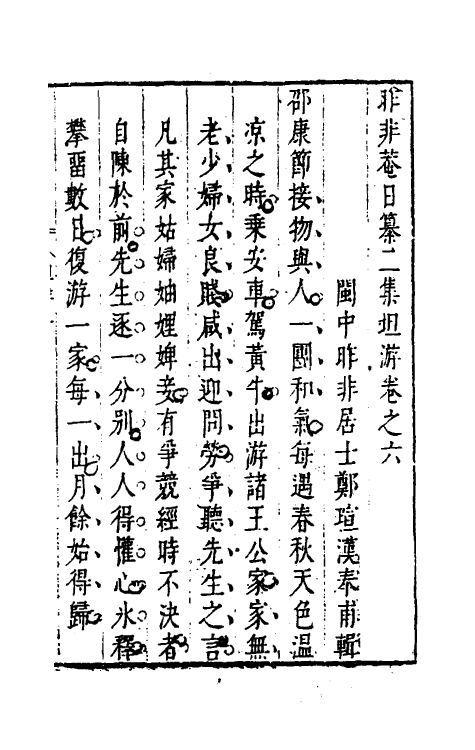 昨非菴日纂二集坦游卷之六
閩中昨非居士鄭瑄漢奉甫輯
邵康節接物與人一團和氣每遇春秋天色溫
凉之時乘安車駕黃牛出游諸王公家家無
老少婦女良賤咸出迎問勞爭聽先生之言
凡其家姑婦妯娌婢妾有爭競經時不決者
自陳於前先生逐一分別人人得懽心氷釋
攀畱數日復游一家每一出月餘始得歸